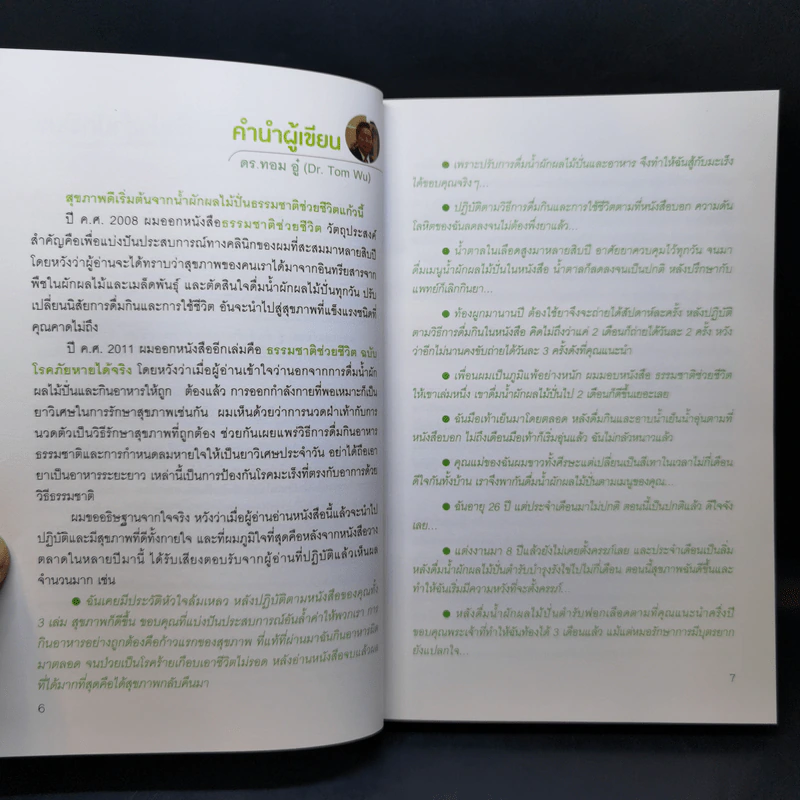 คำนำผู้เขียน
ดร.ทอม อู๋ (Dr. Tom Wu)
สุขภาพดีเริ่มต้นจากน้ำผักผลไม้ปั่นธรรมชาติช่วยชีวิตแก้วนี้
ปี ค.ศ. 2008 ผมออกหนังสือธรรมชาติช่วยชีวิต วัตถุประสงค์
สำคัญคือเพื่อแบ่งปันประสบการณ์ทางคลินิกของผมที่สะสมมาหลายสิบปี
โดยหวังว่าผู้อ่านจะได้ทราบว่าสุขภาพของคนเราได้มาจากอินทรียสารจาก
พืชในผักผลไม้และเมล็ดพันธุ์ และตัดสินใจดื่มน้ำผักผลไม้ปั่นทุกวัน ปรับ
เปลี่ยนนิสัยการดื่มกินและการใช้ชีวิต อันจะนำไปสู่สุขภาพที่แข็งแรงชนิดที่
คุณคาดไม่ถึง
ปี ค.ศ. 2011 ผมออกหนังสืออีกเล่มคือ ธรรมชาติช่วยชีวิต ฉบับ
โรคภัยหายได้จริง โดยหวังว่าเมื่อผู้อ่านเข้าใจว่านอกจากการดื่มน้ำผัก
ผลไม้ปั่นและกินอาหารให้ถูก ต้องแล้ว การออกกำลังกายที่พอเหมาะก็เป็น
ยาวิเศษในการรักษาสุขภาพเช่นกัน ผมเห็นด้วยว่าการนวดฝ่าเท้ากับการ
นวดตัวเป็นวิธีรักษาสุขภาพที่ถูกต้อง ช่วยกันเผยแพร่วิธีการดื่มกินอาหาร
ธรรมชาติและการกำหนดลมหายใจให้เป็นยาวิเศษประจำวัน อย่าได้ถือเอา
ยาเป็นอาหารระยะยาว เหล่านี้เป็นการป้องกันโรคมะเร็งที่ตรงกับอาการด้วย
วิธีธรรมชาติ
ผมขออธิษฐานจากใจจริง หวังว่าเมื่อผู้อ่านอ่านหนังสือนี้แล้วจะนำไป
ปฏิบัติและมีสุขภาพที่ดีทั้งกายใจ และที่ผมภูมิใจที่สุดคือหลังจากหนังสือวาง
ตลาดในหลายปีมานี้ ได้รับเสียงตอบรับจากผู้อ่านที่ปฏิบัติแล้วเห็นผล
จำนวนมาก เช่น
● ฉันเคยมีประวัติหัวใจล้มเหลว หลังปฏิบัติตามหนังสือของคุณทั้ง
3 เล่ม สุขภาพก็ดีขึ้น ขอบคุณที่แบ่งปันประสบการณ์อันล้ำค่าให้พวกเรา การ
กินอาหารอย่างถูกต้องคือก้าวแรกของสุขภาพ ที่แท้ที่ผ่านมาฉันกินอาหารผิด
มาตลอด จนป่วยเป็นโรคร้ายเกือบเอาชีวิตไม่รอด หลังอ่านหนังสือจบแล้วผล
ที่ได้มากที่สุดคือได้สุขภาพกลับคืนมา
6
● เพราะปรับการดื่มน้ำผักผลไม้ปั่นและอาหาร จึงทำให้ฉันสู้กับมะเร็ง
ได้ขอบคุณจริงๆ...
● ปฏิบัติตามวิธีการดื่มกินและการใช้ชีวิตตามที่หนังสือบอก ความดัน
โลหิตของฉันลดลงจนไม่ต้องพึ่งยาแล้ว...
● น้ำตาลในเลือดสูงมาหลายสิบปี อาศัยยาควบคุมไว้ทุกวัน จนมา
ดื่มเมนูน้ำผักผลไม้ปั่นในหนังสือ น้ำตาลก็ลดลงจนเป็นปกติ หลังปรึกษากับ
แพทย์ก็เลิกกินยา...
● ท้องผูกมานานปี ต้องใช้ยาจึงจะถ่ายได้สัปดาห์ละครั้ง หลังปฏิบัติ
ตามวิธีการดื่มกินในหนังสือ คิดไม่ถึงว่าแค่ 2 เดือนก็ถ่ายได้วันละ 2 ครั้ง หวัง
ว่าอีกไม่นานคงขับถ่ายได้วันละ 3 ครั้งดังที่คุณแนะนำ
● เพื่อนผมเป็นภูมิแพ้อย่างหนัก ผมมอบหนังสือ ธรรมชาติช่วยชีวิต
ให้เขาเล่มหนึ่ง เขาดื่มน้ำผักผลไม้ปั่นไป 2 เดือนก็ดีขึ้นเยอะเลย
● ฉันมือเท้าเย็นมาโดยตลอด หลังดื่มกินและอาบน้ำเย็นน้ำอุ่นตามที่
หนังสือบอก ไม่ถึงเดือนมือเท้าก็เริ่มอุ่นแล้ว ฉันไม่กลัวหนาวแล้ว
● คุณแม่ของฉันผมขาวทั้งศีรษะแต่เปลี่ยนเป็นสีเทาในเวลาไม่กี่เดือน
ดีใจกันทั้งบ้าน เราจึงพากันดื่มน้ำผักผลไม้ปั่นตามเมนูของคุณ...
● ฉันอายุ 26 ปี แต่ประจำเดือนมาไม่ปกติ ตอนนี้เป็นปกติแล้ว ดีใจจัง
เลย...
● แต่งงานมา 8 ปีแล้วยังไม่เคยตั้งครรภ์เลย และประจำเดือนเป็นลิ่ม
หลังดื่มน้ำผักผลไม้ปั่นตำรับบำรุงรังไข่ไปไม่กี่เดือน ตอนนี้สุขภาพฉันดีขึ้นและ
ทำให้ฉันเริ่มมีความหวังที่จะตั้งครรภ์.
● หลังดื่มน้ำผักผลไม้ปั่นตำรับฟอกเลือดตามที่คุณแนะนำครึ่งปี
ขอบคุณพระเจ้าที่ทำให้ฉันท้องได้ 3 เดือนแล้ว แม้แต่หมอรักษาการมีบุตรยาก
ยังแปลกใจ...
7